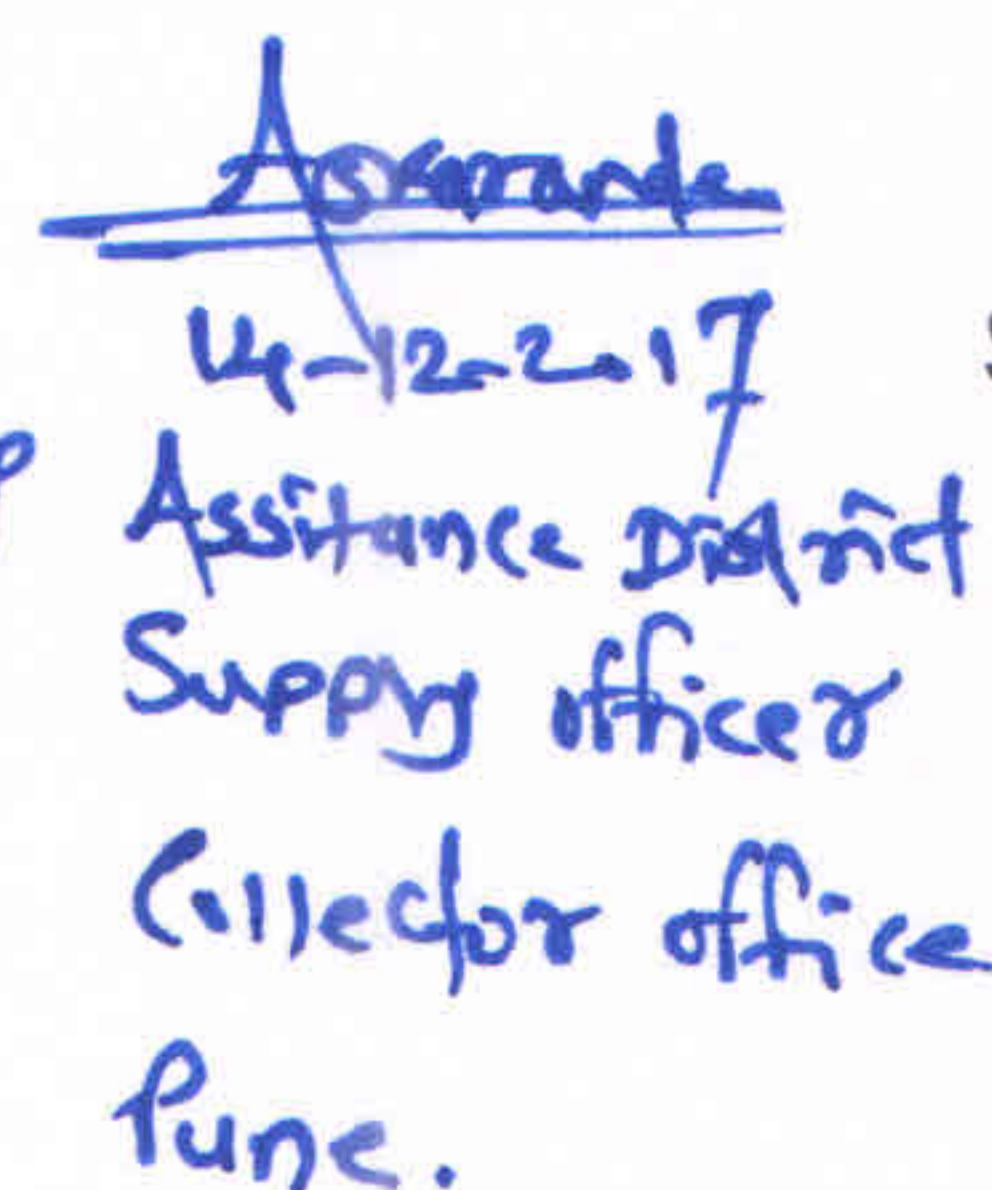 14-12-2017
Assitance District
Supply officer
Collector office
Pune.